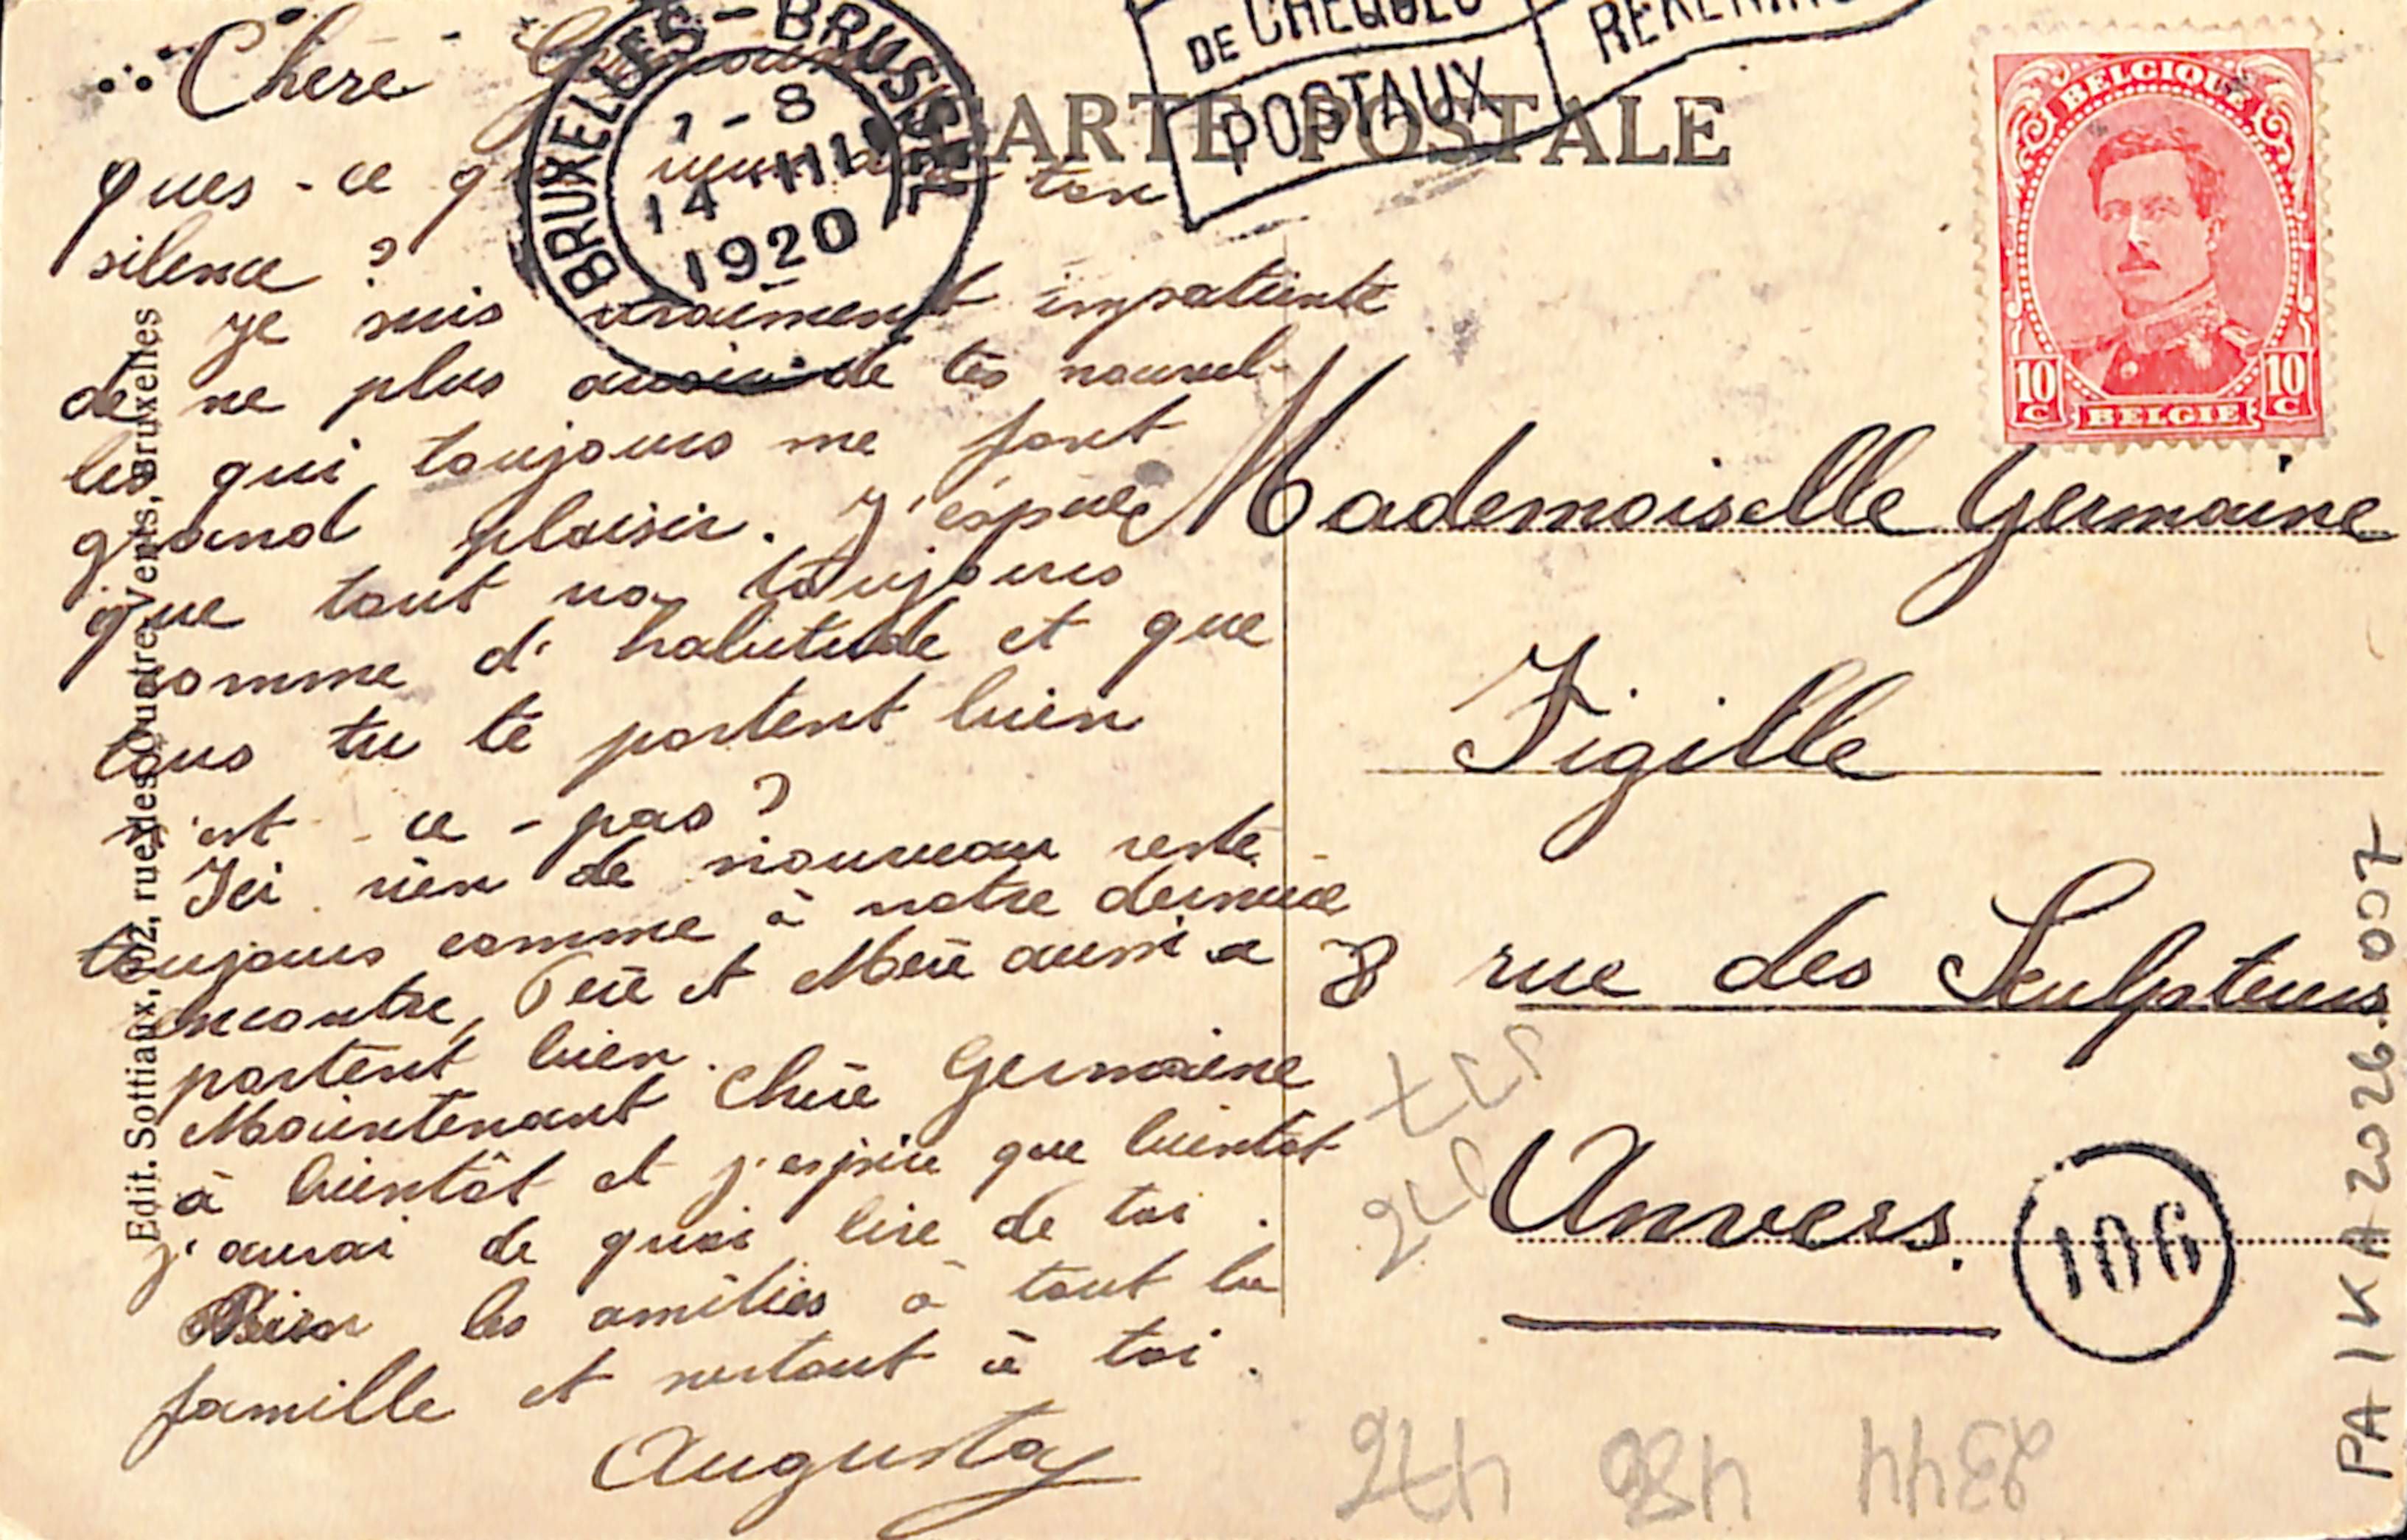 Chère
ques-ce ton
silence ?
Je suis vraiment impatiente
de ne plus avoir de tes nouvel-
les qui toujours me font
grand plaisir. J'éspère
que tout va toujours
comme d'habitude et que
tous tu te portent bien
n'est-ce-pas ?
Ici rien de nouveau reste
toujours comme à notre dernière
encontre, Père et Mère aussi
portent bien.
Maintenant Chère Germaine
à bientôt et j'espère que bientôt
j'aurai de quoi lire de toi.
Bien les amitiés à tout la
famille et surtout à toi.
Augusta
Edit. Sottiaux, 102, rue des Quatre Vents, Bruxelles
BRUXELLES-BRUSSEL
7-8
14 III
1920
DE CHEQUES
POSTAUX
CARTE POSTALE
BELGIQUE
10 C 10 C
BELGIE
Mademoiselle Germaine
Figille
8 rue des Sculpteurs
Anvers.
106
PAIKA2026.S007
2344 480 476